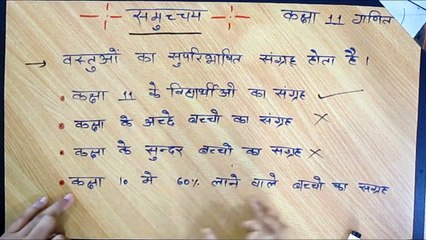 समुच्चम कक्षा 11 गणित
→ वस्तुओं का सुपरिभाषित संग्रह होता है।
• कक्षा 11 के विद्यार्थीओ का संग्रह ✓
• कक्षा के अच्छे बच्चो का संग्रह ×
• कक्षा के सुन्दर बच्चो का संग्रह ×
• कक्षा 10 मे 60% लाने वाले बच्चो का संग्रह